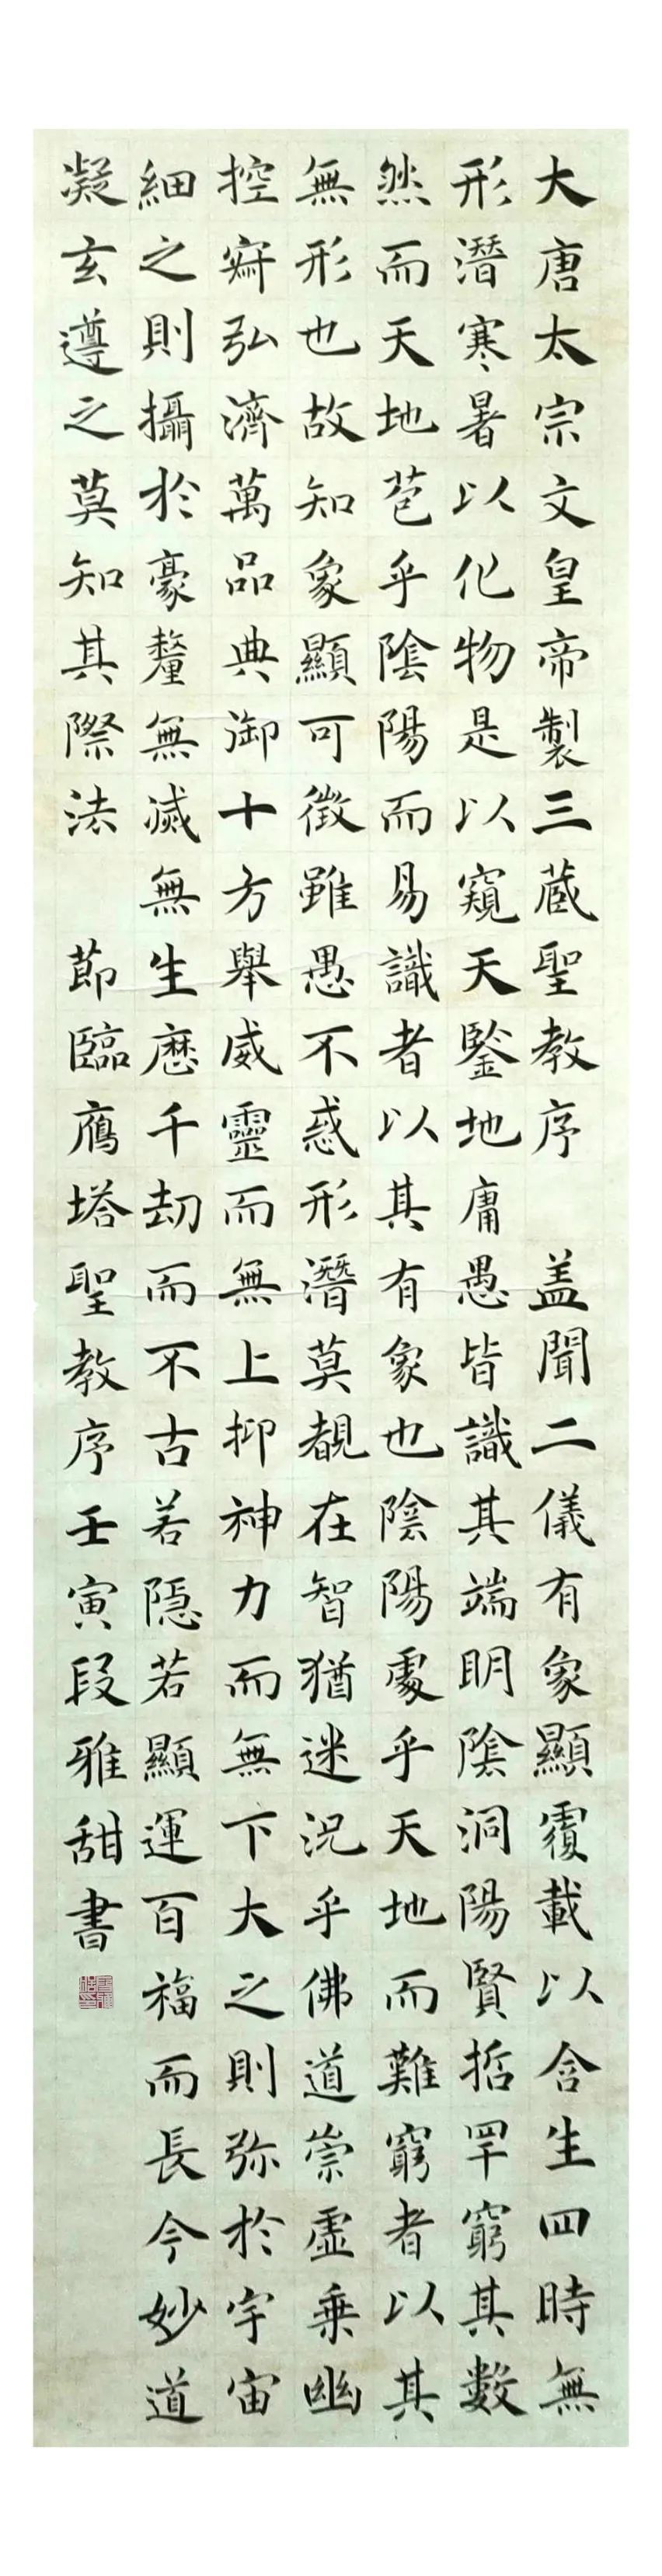 大唐太宗文皇帝製三蔵聖教序 盖聞二儀有象顯覆載以含生四時無
形潛寒暑以化物是以窺天鑒地庸愚皆識其端明陰洞陽賢哲罕窮其數
然而天地苞乎陰陽而易識者以其有象也陰陽處乎天地而難窮者以其
無形也故知象顯可徵雖愚不惑形潛莫覩在智猶迷況乎佛道崇虛乗幽
控寂弘濟萬品典御十方舉威靈而無上抑神力而無下大之則弥於宇宙
細之則攝於豪釐無滅無生歷千劫而不古若隱若顯運百福而長今妙道
凝玄遵之莫知其際法 節臨鴈塔聖教序壬寅段雅甜書